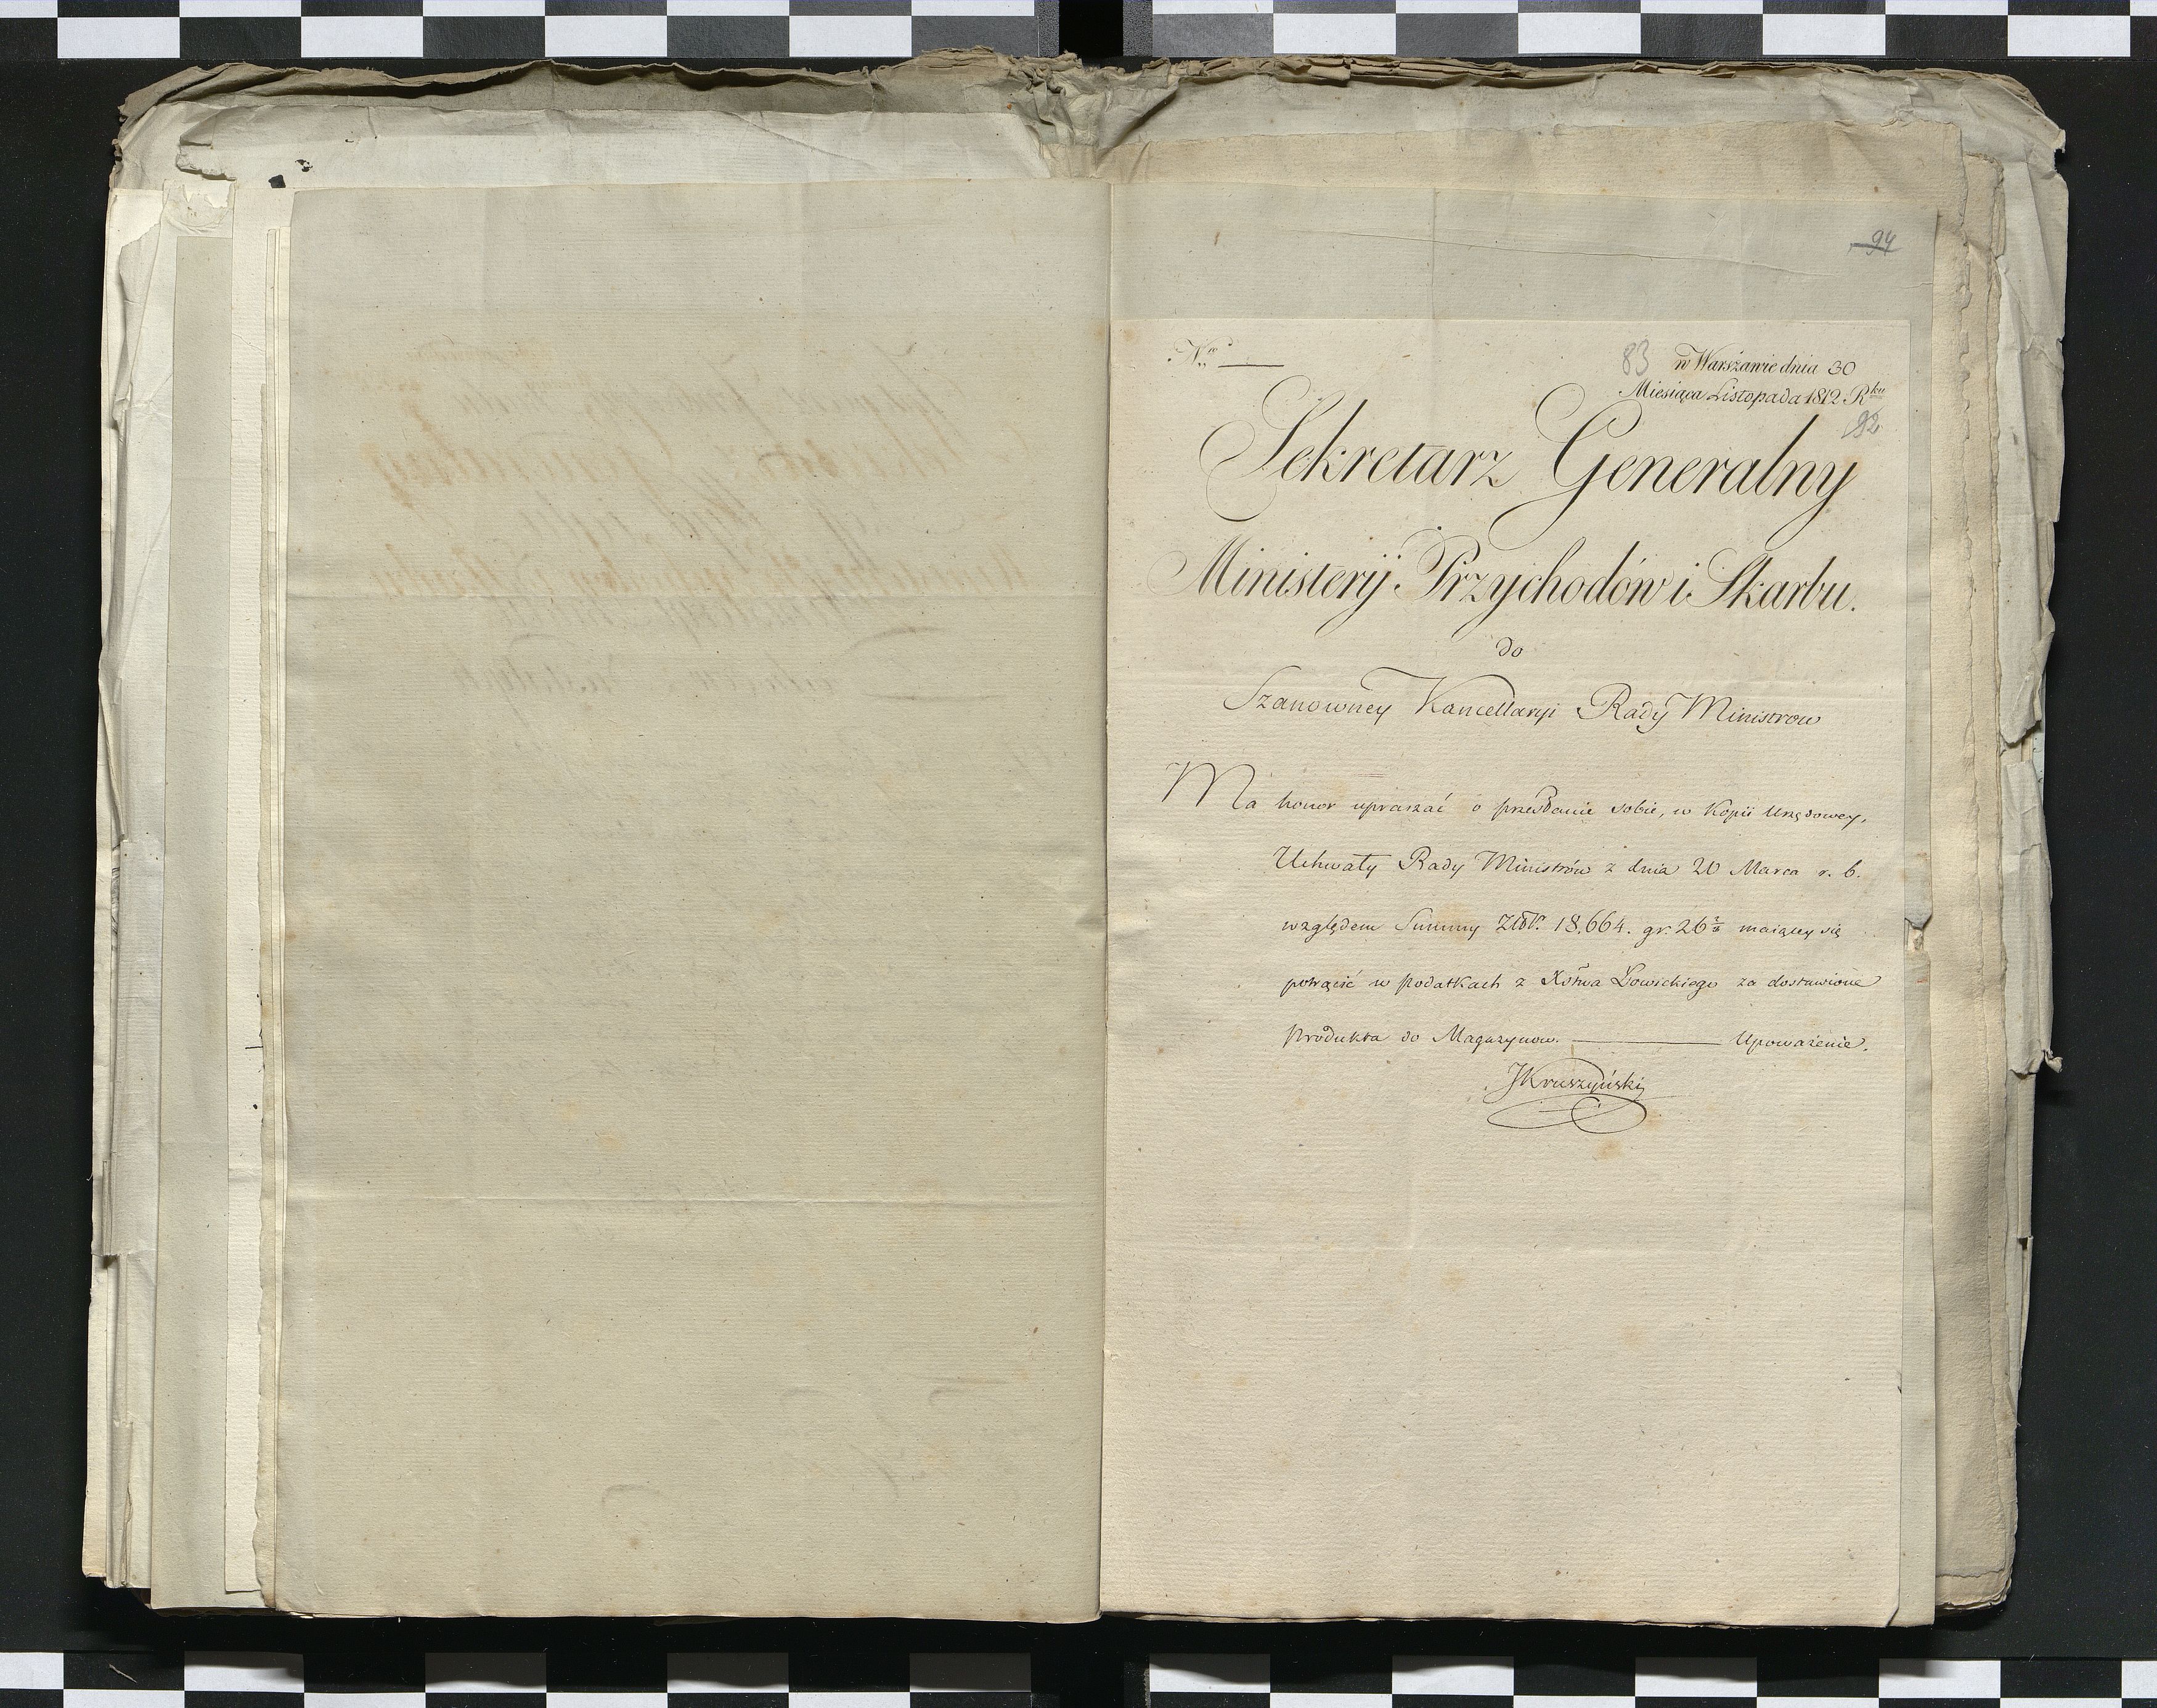 94
N.ro
83 w Warszawie dnia 30
Miesiąca Listopada 1812 Rku
92
Sekretarz Generalny
Ministerij Przychodów i Skarbu.
do
Szanowney Kancellaryi Rady Ministrow
Ma honor upraszać o przesłanie sobie, w Kopii Urzędowey,
Uchwały Rady Ministrów z dnia 20 Marca r. b.
względem Summy Złotp. 18,664. gr. 26 maiącey się
potrącić w podatkach z Xstwa Łowickiego za dostawione
produkta do Magazynow. ——— Upoważenie.
JKruszyński